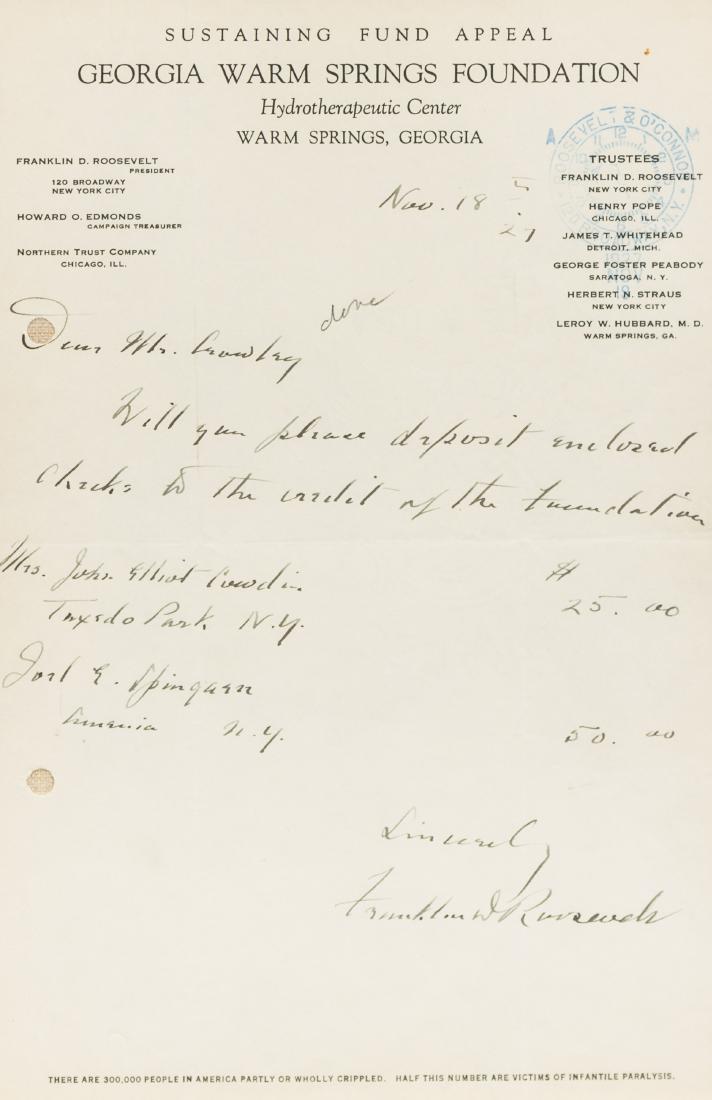 SUSTAINING FUND APPEAL
GEORGIA WARM SPRINGS FOUNDATION
Hydrotherapeutic Center
WARM SPRINGS, GEORGIA
FRANKLIN D. ROOSEVELT
PRESIDENT
120 BROADWAY
NEW YORK CITY
HOWARD O. EDMONDS
CAMPAIGN TREASURER
NORTHERN TRUST COMPANY
CHICAGO, ILL.
ROOSEVELT & O'CONNOR
A M
N.Y.
1927
NOV
18
TRUSTEES
FRANKLIN D. ROOSEVELT
NEW YORK CITY
HENRY POPE
CHICAGO, ILL.
JAMES T. WHITEHEAD
DETROIT, MICH.
GEORGE FOSTER PEABODY
SARATOGA, N. Y.
HERBERT N. STRAUS
NEW YORK CITY
LEROY W. HUBBARD, M. D.
WARM SPRINGS, GA.
Nov. 18
27
done
Dear Mr. Crowley
Will you please deposit enclosed
checks to the credit of the Foundation
Mrs. John Elliot Cowdin $ 25.00
Tuxedo Park N.Y.
Joel E. Spingarn
Amenia N.Y. 50.00
Sincerely
Franklin D Roosevelt
THERE ARE 300,000 PEOPLE IN AMERICA PARTLY OR WHOLLY CRIPPLED. HALF THIS NUMBER ARE VICTIMS OF INFANTILE PARALYSIS.